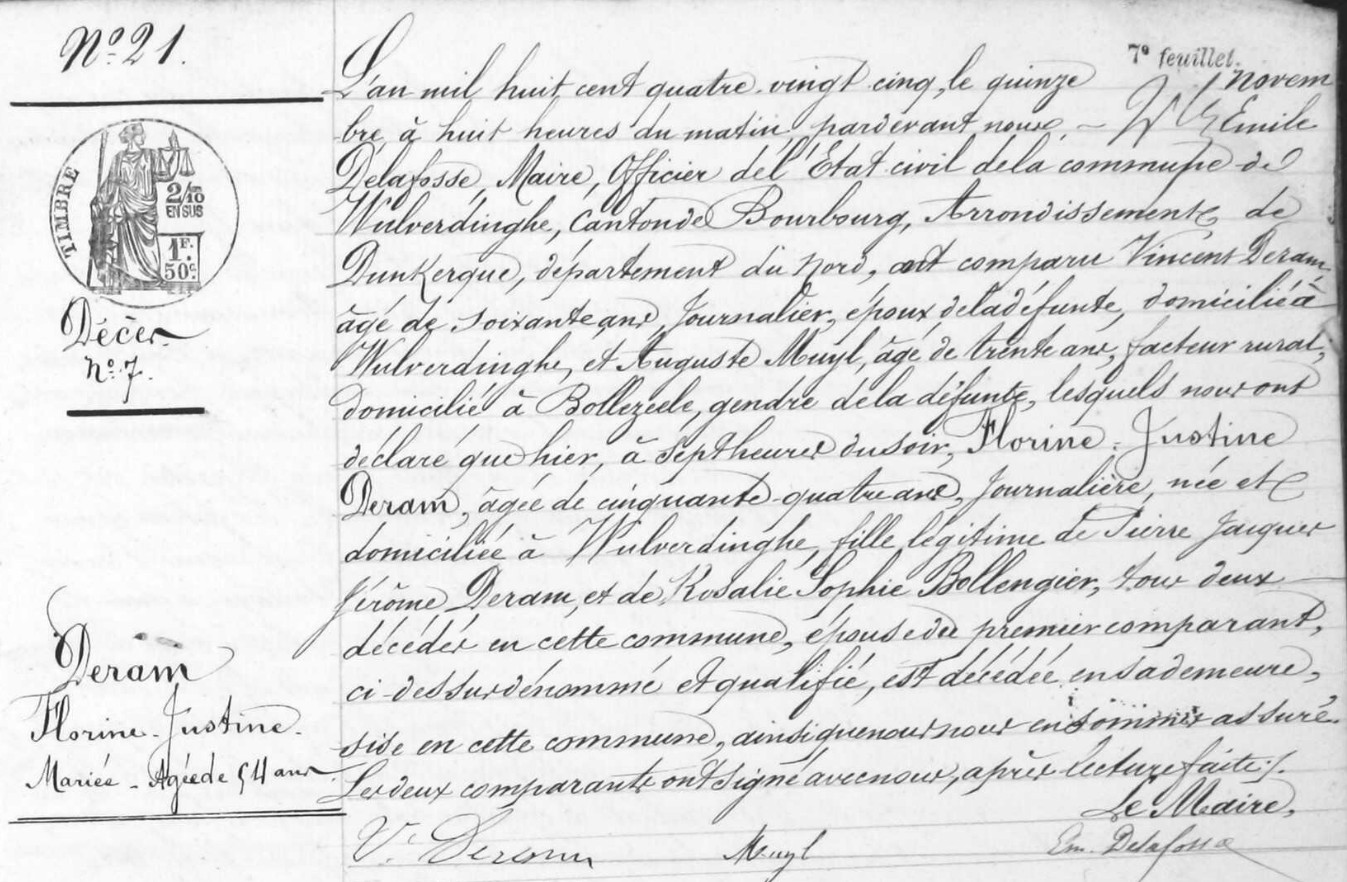 Nº 21.
7e feuillet.
TIMBRE
2/10
EN SUS
1F.
50c
Décès
nº 7.
Deram
Florine Justine
Mariée - Agée de 54 ans
L'an mil huit cent quatre-vingt cinq, le quinze novem
bre, à huit heures du matin, pardevant nous, - Emile
Delafosse, Maire, Officier de l'Etat-civil de la commune de
Wulverdinghe, Canton de Bourbourg, Arrondissement de
Dunkerque, département du Nord, ont comparu Vincent Deram,
âgé de soixante ans, Journalier, époux de la défunte, domicilié à
Wulverdinghe, et Auguste Muyl, âgé de trente ans, facteur rural,
domicilié à Bollezeele, gendre de la défunte, lesquels nous ont
déclaré que hier, à sept heures du soir, Florine Justine
Deram, âgée de cinquante-quatre ans, Journalière, née et
domiciliée à Wulverdinghe, fille légitime de Pierre Jacques
Jérôme Deram et de Rosalie Sophie Bollengier, tous deux
décédés en cette commune, épouse du premier comparant,
ci-dessus dénommé et qualifié, est décédée en sa demeure,
sise en cette commune, ainsi que nous nous en sommes assuré.
Les deux comparants ont signé avec nous, après lecture faite ./.
Le Maire,
Vt Deram Muyl Em. Delafosse